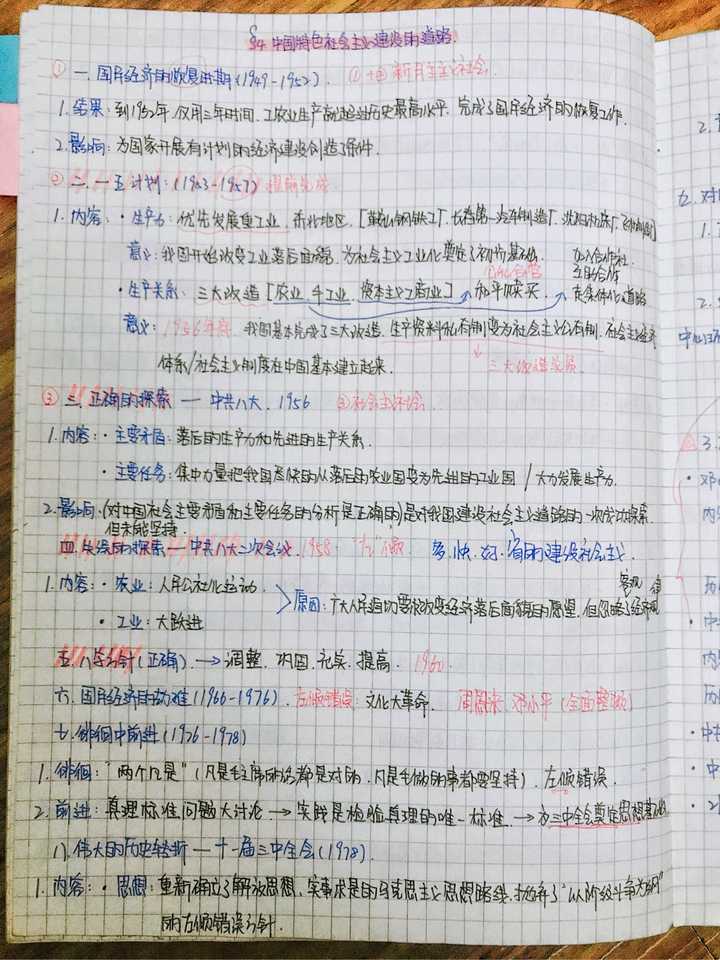 §4 中国特色社会主义建设的道路.
① 一. 国民经济的恢复时期(1949-1952). ①+② 新民主主义社会.
1. 结果: 到1952年, 仅用三年时间, 工农业生产都超过历史最高水平. 完成了国民经济的恢复工作.
2. 影响: 为国家开展有计划的经济建设创造了条件.
② 二. 一五计划: (1953-1957) 提前完成
1. 内容: · 生产力: 优先发展重工业, 东北地区. [鞍山钢铁厂. 长春第一汽车制造厂. 沈阳机床厂. 飞机制造厂]
意义: 我国开始改变工业落后面貌. 为社会主义工业化奠定了初步基础. 加入合作社.
公私合营 互助合作
· 生产关系: 三大改造 [农业. 手工业. 资本主义工商业] 和平赎买. 走集体化道路
意义: 1956年底 我国基本完成了三大改造. 生产资料私有制变为社会主义公有制. 社会主义经济
体系/社会主义制度在中国基本建立起来. 三大改造实质.
③ 三. 正确的探索 — 中共八大. 1956 ③社会主义社会.
1. 内容: · 主要矛盾: 落后的生产力和先进的生产关系.
· 主要任务: 集中力量把我国尽快的从落后的农业国变为先进的工业国 / 大力发展生产力.
2. 影响: (对中国社会主要矛盾和主要任务的分析是正确的) 是对我国建设社会主义道路的一次成功探索.
但未能坚持.
四. 失误的探索 — 中共八大二次会议. 1958. "左"倾 多. 快. 好. 省的建设社会主义.
1. 内容: · 农业: 人民公社化运动. 原因: 广大人民迫切要求改变经济落后面貌的愿望. 但忽略了经济规 客观 律
· 工业: 大跃进
五. 八字方针 (正确). → 调整. 巩固. 充实. 提高. 1960.
六. 国民经济的劫难 (1966-1976). 左倾错误: 文化大革命. 周恩来. 邓小平 (全面整顿)
七. 徘徊中前进 (1976-1978)
1. 徘徊: "两个凡是" (凡是毛主席的话都是对的. 凡是毛做的事都要坚持). 左倾错误.
2. 前进: 真理标准问题大讨论 → 实践是检验真理的唯一标准. → 为三中全会奠定思想基础.
八. 伟大的历史转折 — 十一届三中全会 (1978).
1. 内容: · 思想: 重新确立了解放思想. 实事求是的马克思主义思想路线. 抛弃了"以阶级斗争为纲"
的左倾错误方针.